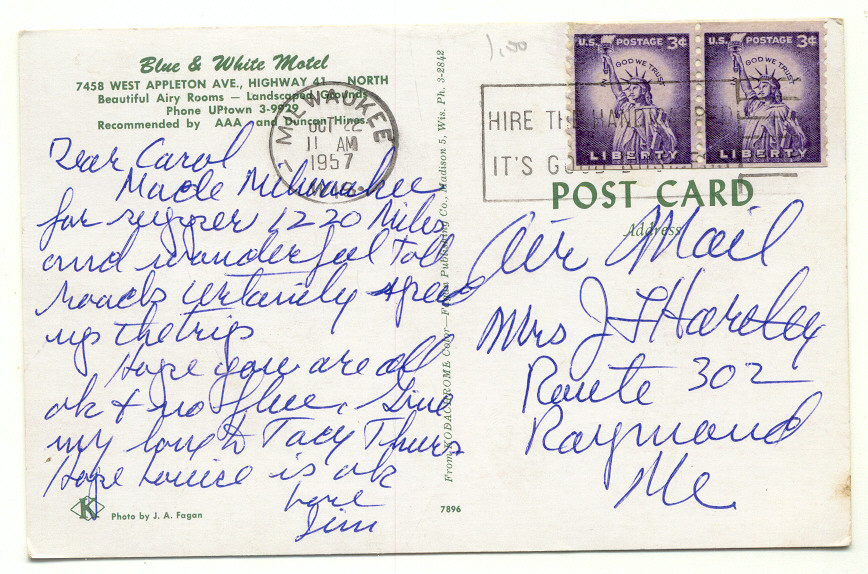 Blue & White Motel
7458 WEST APPLETON AVE., HIGHWAY 41 NORTH
Beautiful Airy Rooms — Landscaped Grounds
Phone UPtown 3-9929
Recommended by AAA and Duncan Hines.
MILWAUKEE
OCT 22
11 AM
1957
WIS.
1.00
U.S. POSTAGE 3¢
IN GOD WE TRUST
LIBERTY
U.S. POSTAGE 3¢
IN GOD WE TRUST
LIBERTY
HIRE THE HANDI
IT'S GOOD
POST CARD
Address
Dear Carol
Made Milwaukee
for supper 1220 Miles
and wonderful Toll
roads certainly speed
up the trip
Hope you are all
ok & no flue. Give
my love to Tacy Thurs
Hope Louice is ok
love
Jim
Air Mail
Mrs J F Hartley
Route 302
Raymond
Me.
From KODACHROME Color—Publishing Co., Madison 5, Wis. Ph. 3-2842
K
Photo by J. A. Fagan
7896